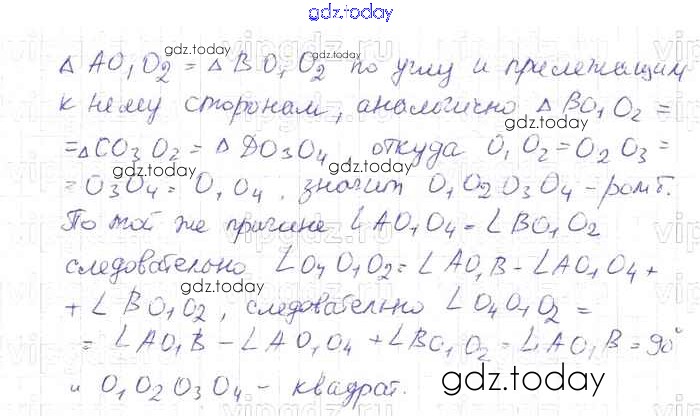 gdz.today
△ AO₁O₂ = △ BO₁O₂ по углу и прилежащим
к нему сторонам, аналогично △ BO₁O₂ =
= △ CO₃O₂ = △ DO₃O₄ откуда O₁O₂ = O₂O₃ =
= O₃O₄ = O₁O₄, значит O₁O₂O₃O₄ - ромб.
По той же причине ∠AO₁O₄ = ∠BO₁O₂
следовательно ∠O₄O₁O₂ = ∠AO₁B - ∠AO₁O₄ +
+ ∠BO₁O₂, следовательно ∠O₄O₁O₂ =
= ∠AO₁B - ∠AO₁O₄ + ∠BO₁O₂ = ∠AO₁B = 90°
и O₁O₂O₃O₄ - квадрат.
gdz.today